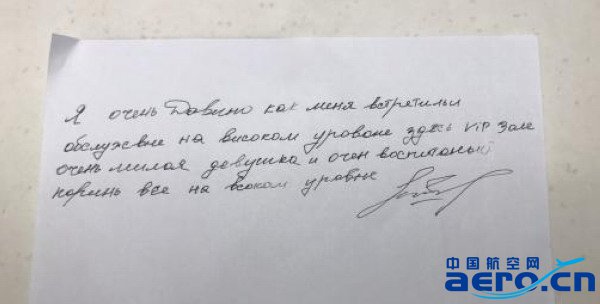 Я очень Довично как меня встретильи
обслужвне на високом уроване здесь ViP Зале
очень милая девушка и очен воспитаный
паринь все на всоком уровне
中国航空网
aero.cn